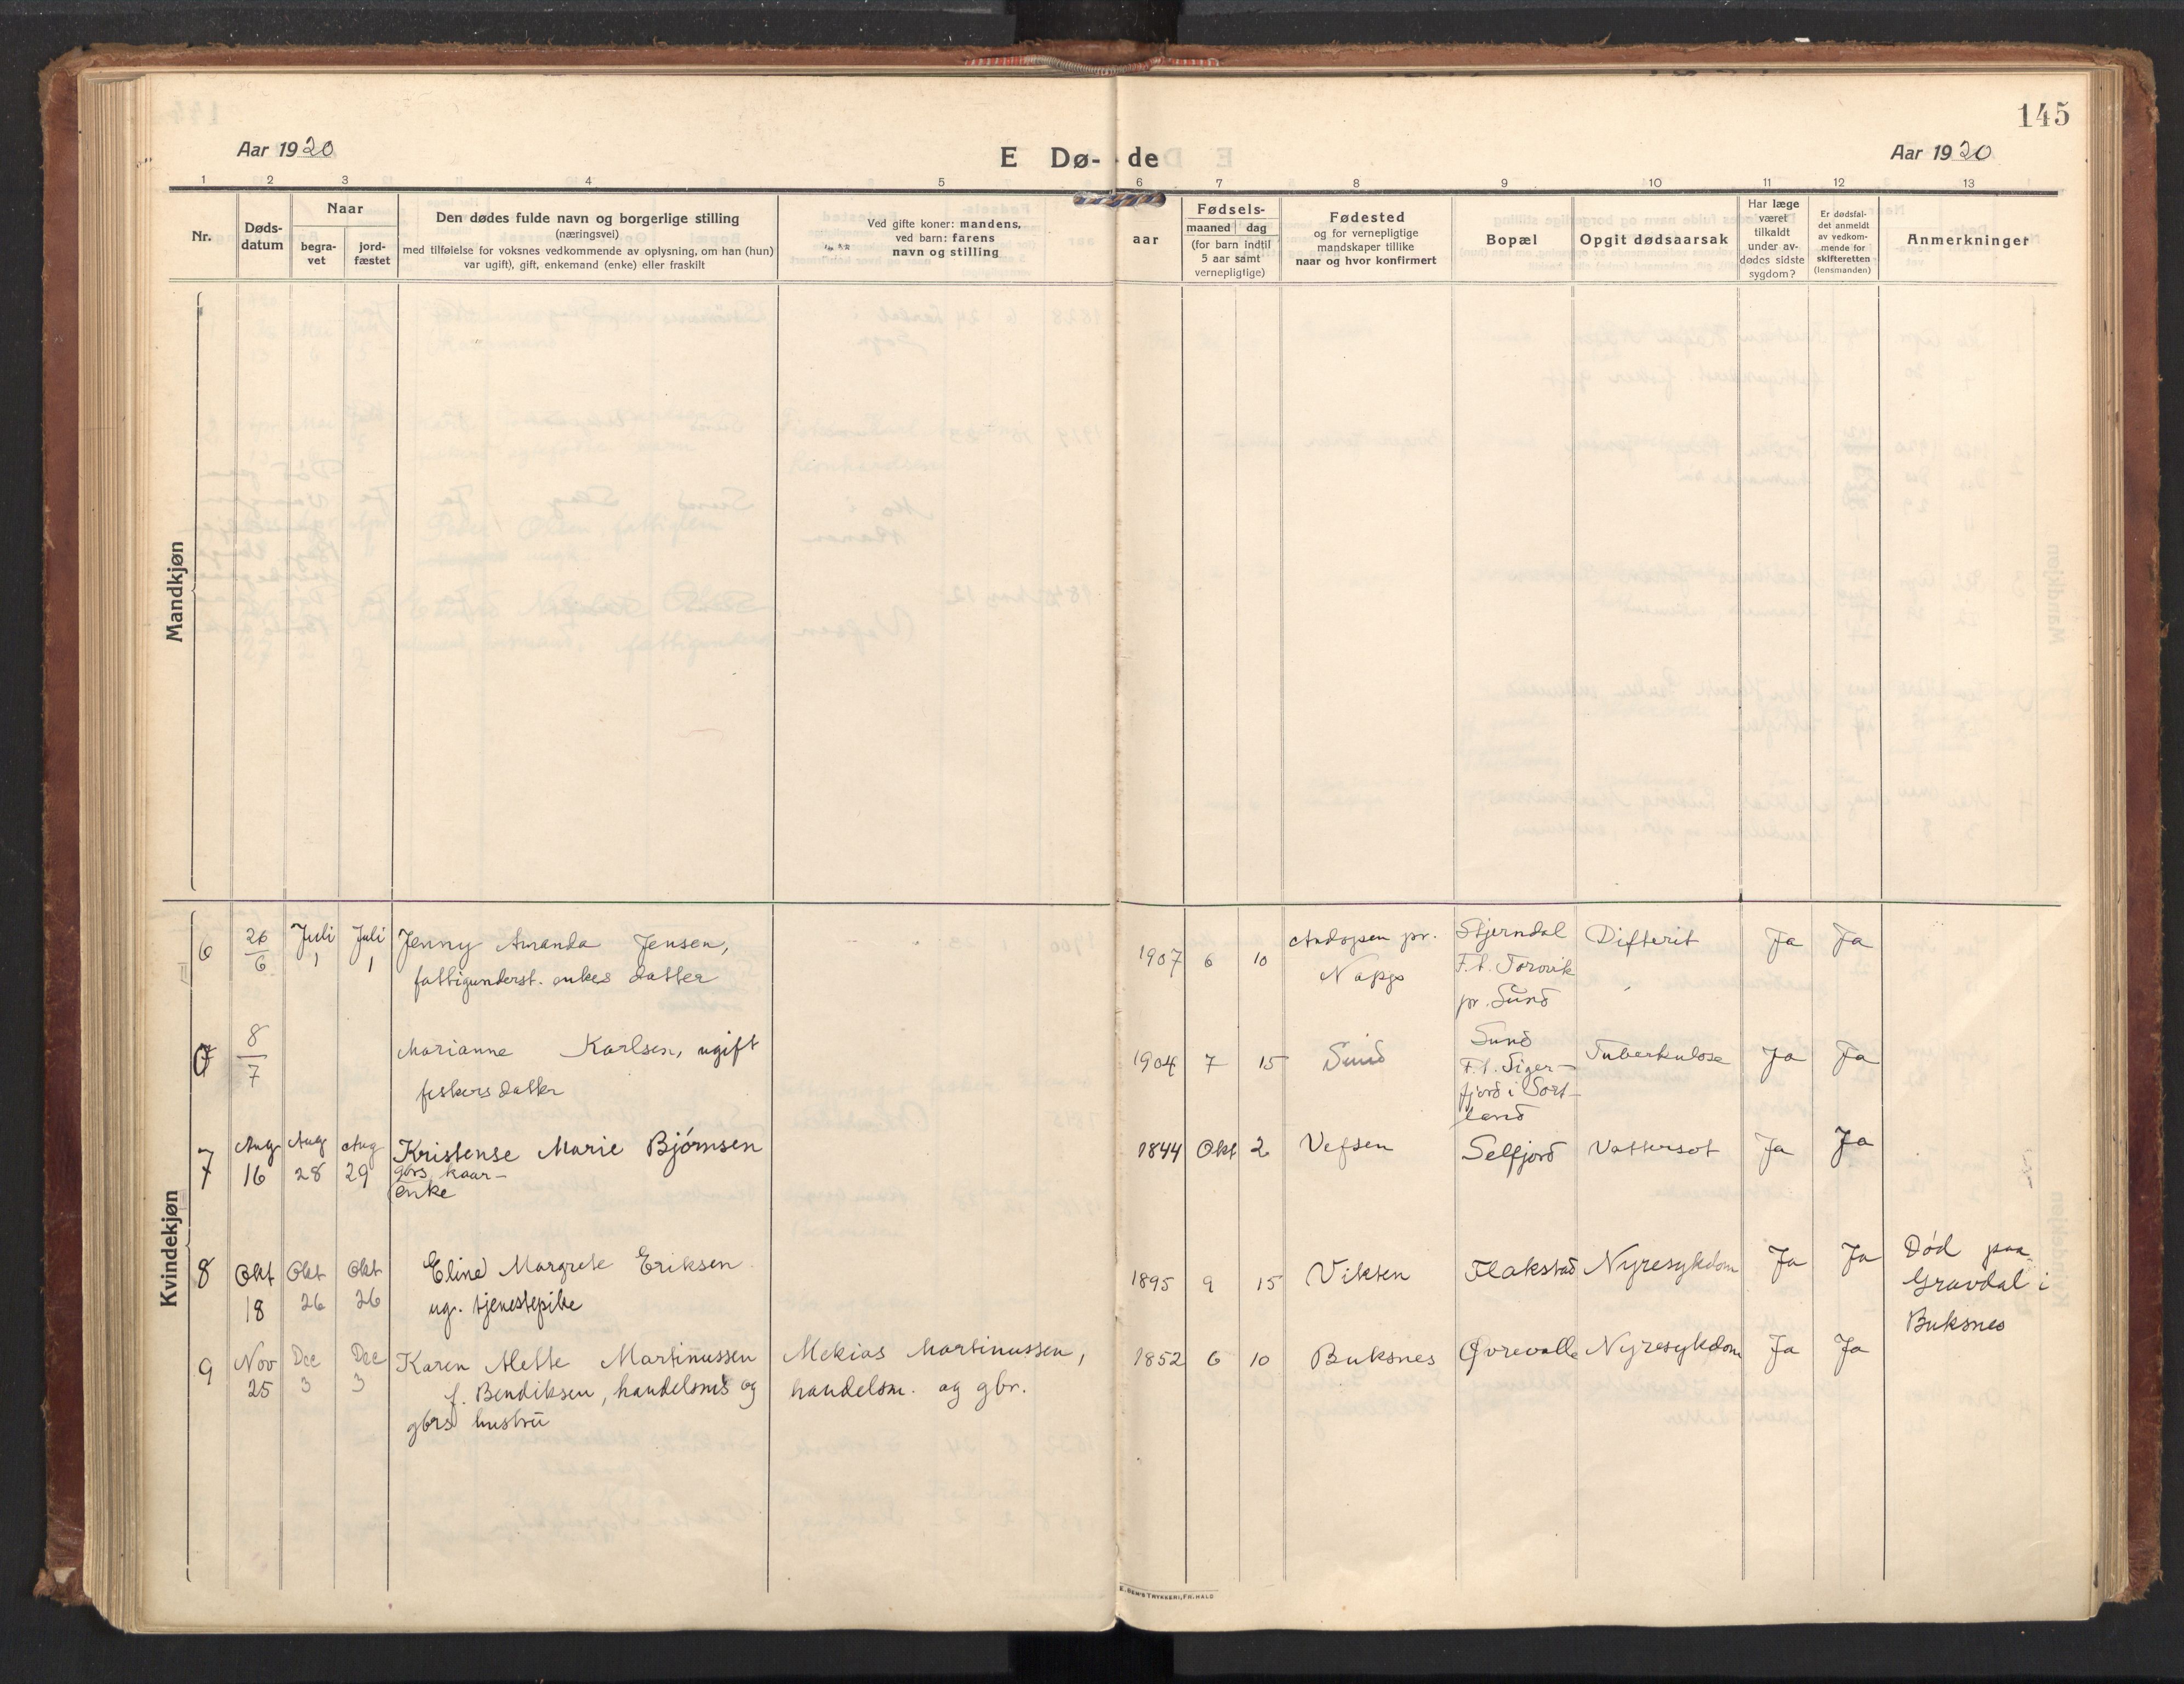 145
Aar 1920
E Dø- de
Aar 1920
1 2 3 4 5 6 7 8 9 10 11 12 13
Nr.
Døds-
datum
Naar
begra-
vet
jord-
fæstet
Den dødes fulde navn og borgerlige stilling
(næringsvei)
med tilføielse for voksnes vedkommende av oplysning, om han (hun)
var ugift), gift, enkemand (enke) eller fraskilt
Ved gifte koner: mandens,
ved barn: farens
navn og stilling
aar
Fødsels-
maaned dag
(for barn indtil
5 aar samt
vernepligtige)
Fødested
og for vernepligtige
mandskaper tillike
naar og hvor konfirmert
Bopæl
Opgit dødsaarsak
Har læge
været
tilkaldt
under av-
dødes sidste
sygdom?
Er dødsfal-
det anmeldt
av vedkom-
mende for
skifteretten
(lensmanden)
Anmerkninger
Mandkjøn
Kvindekjøn
6 26/6 Juli 1 Juli 1 Jenny Amanda Jensen,
fattigunderst. enkes datter
1907 6 10 Andopen pr.
Napp
Stjerndal
F. t. Torvik
pr. Sund
Difterit Ja Ja
8/7 Marianne Karlsen, ugift
fiskersdatter
1904 7 15 Sund
Sund
F. t. Siger-
fjord i Sort-
land
Tuberkulose Ja Ja
7 Aug 16 Aug 28 Aug 29 Kristense Marie Bjørnsen
gbrs, kaar-
enke
1844 Okt 2 Vefsen Selfjord Vattersot Ja Ja
8 Okt 18 Okt 26 Okt 26 Eline Margrete Eriksen
ug. tjenestepike
1895 9 15 Vikten Flakstad Nyresykdom Ja Ja
Død paa
Gravdal i
Buksnes
9 Nov 25 Dec 3 Dec 3 Karen Mette Martinussen
f. Bendiksen, handelsms og
gbrs hustru
Mekias Martinussen,
handelsm. og gbr.
1852 6 10 Buksnes Øvrevolle Nyresykdom Ja Ja